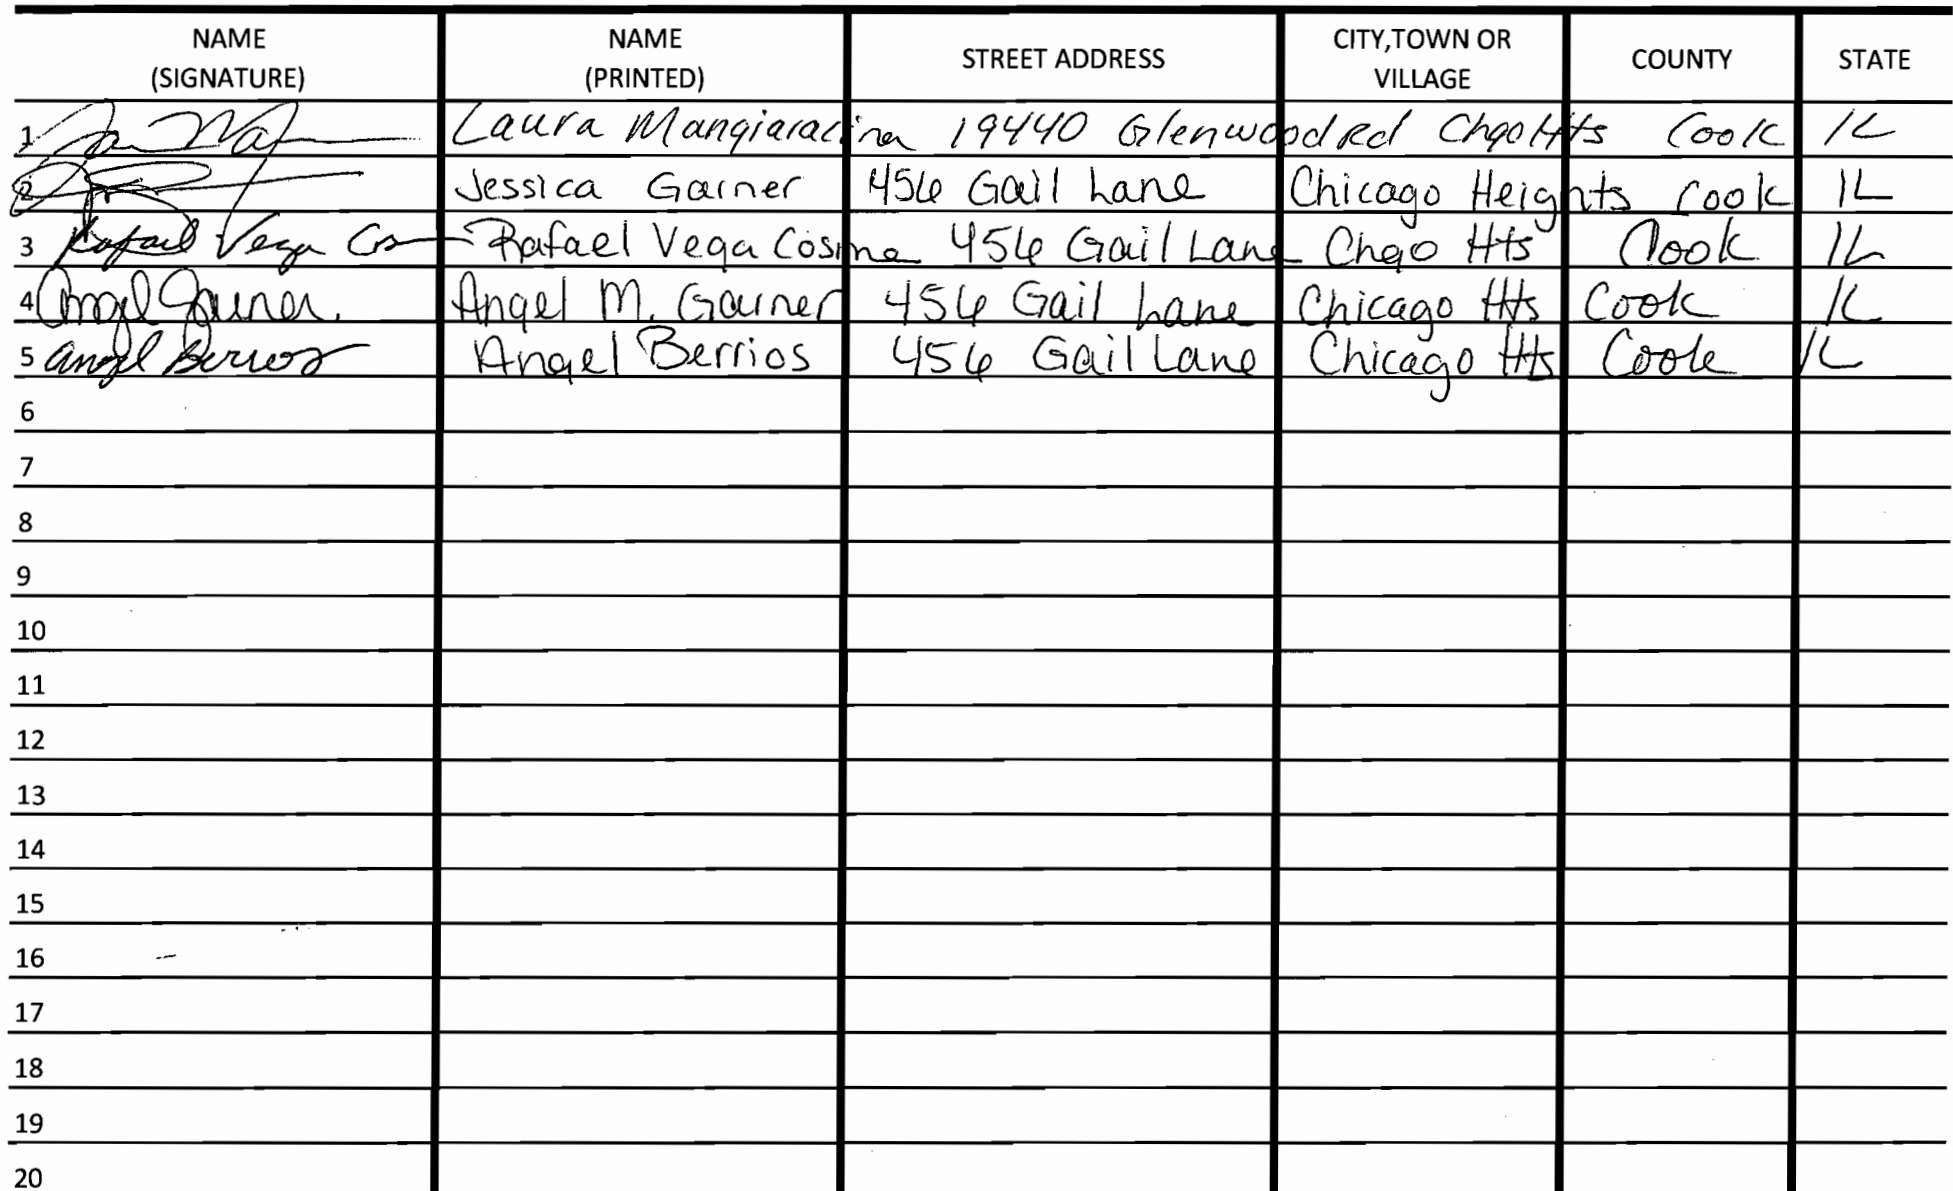 NAME (SIGNATURE) NAME (PRINTED) STREET ADDRESS CITY,TOWN OR VILLAGE COUNTY STATE
1 Laura Mangiaracina 19440 Glenwood Rd Chgo Hts Cook IL
2 Jessica Garner 456 Gail Lane Chicago Heights Cook IL
3 Rafael Vega Cos Rafael Vega Cosme 456 Gail Lane Chgo Hts Cook IL
4 Angel Garner Angel M. Garner 456 Gail Lane Chicago Hts Cook IL
5 Angel Berrios Angel Berrios 456 Gail Lane Chicago Hts Cook IL
6
7
8
9
10
11
12
13
14
15
16
17
18
19
20